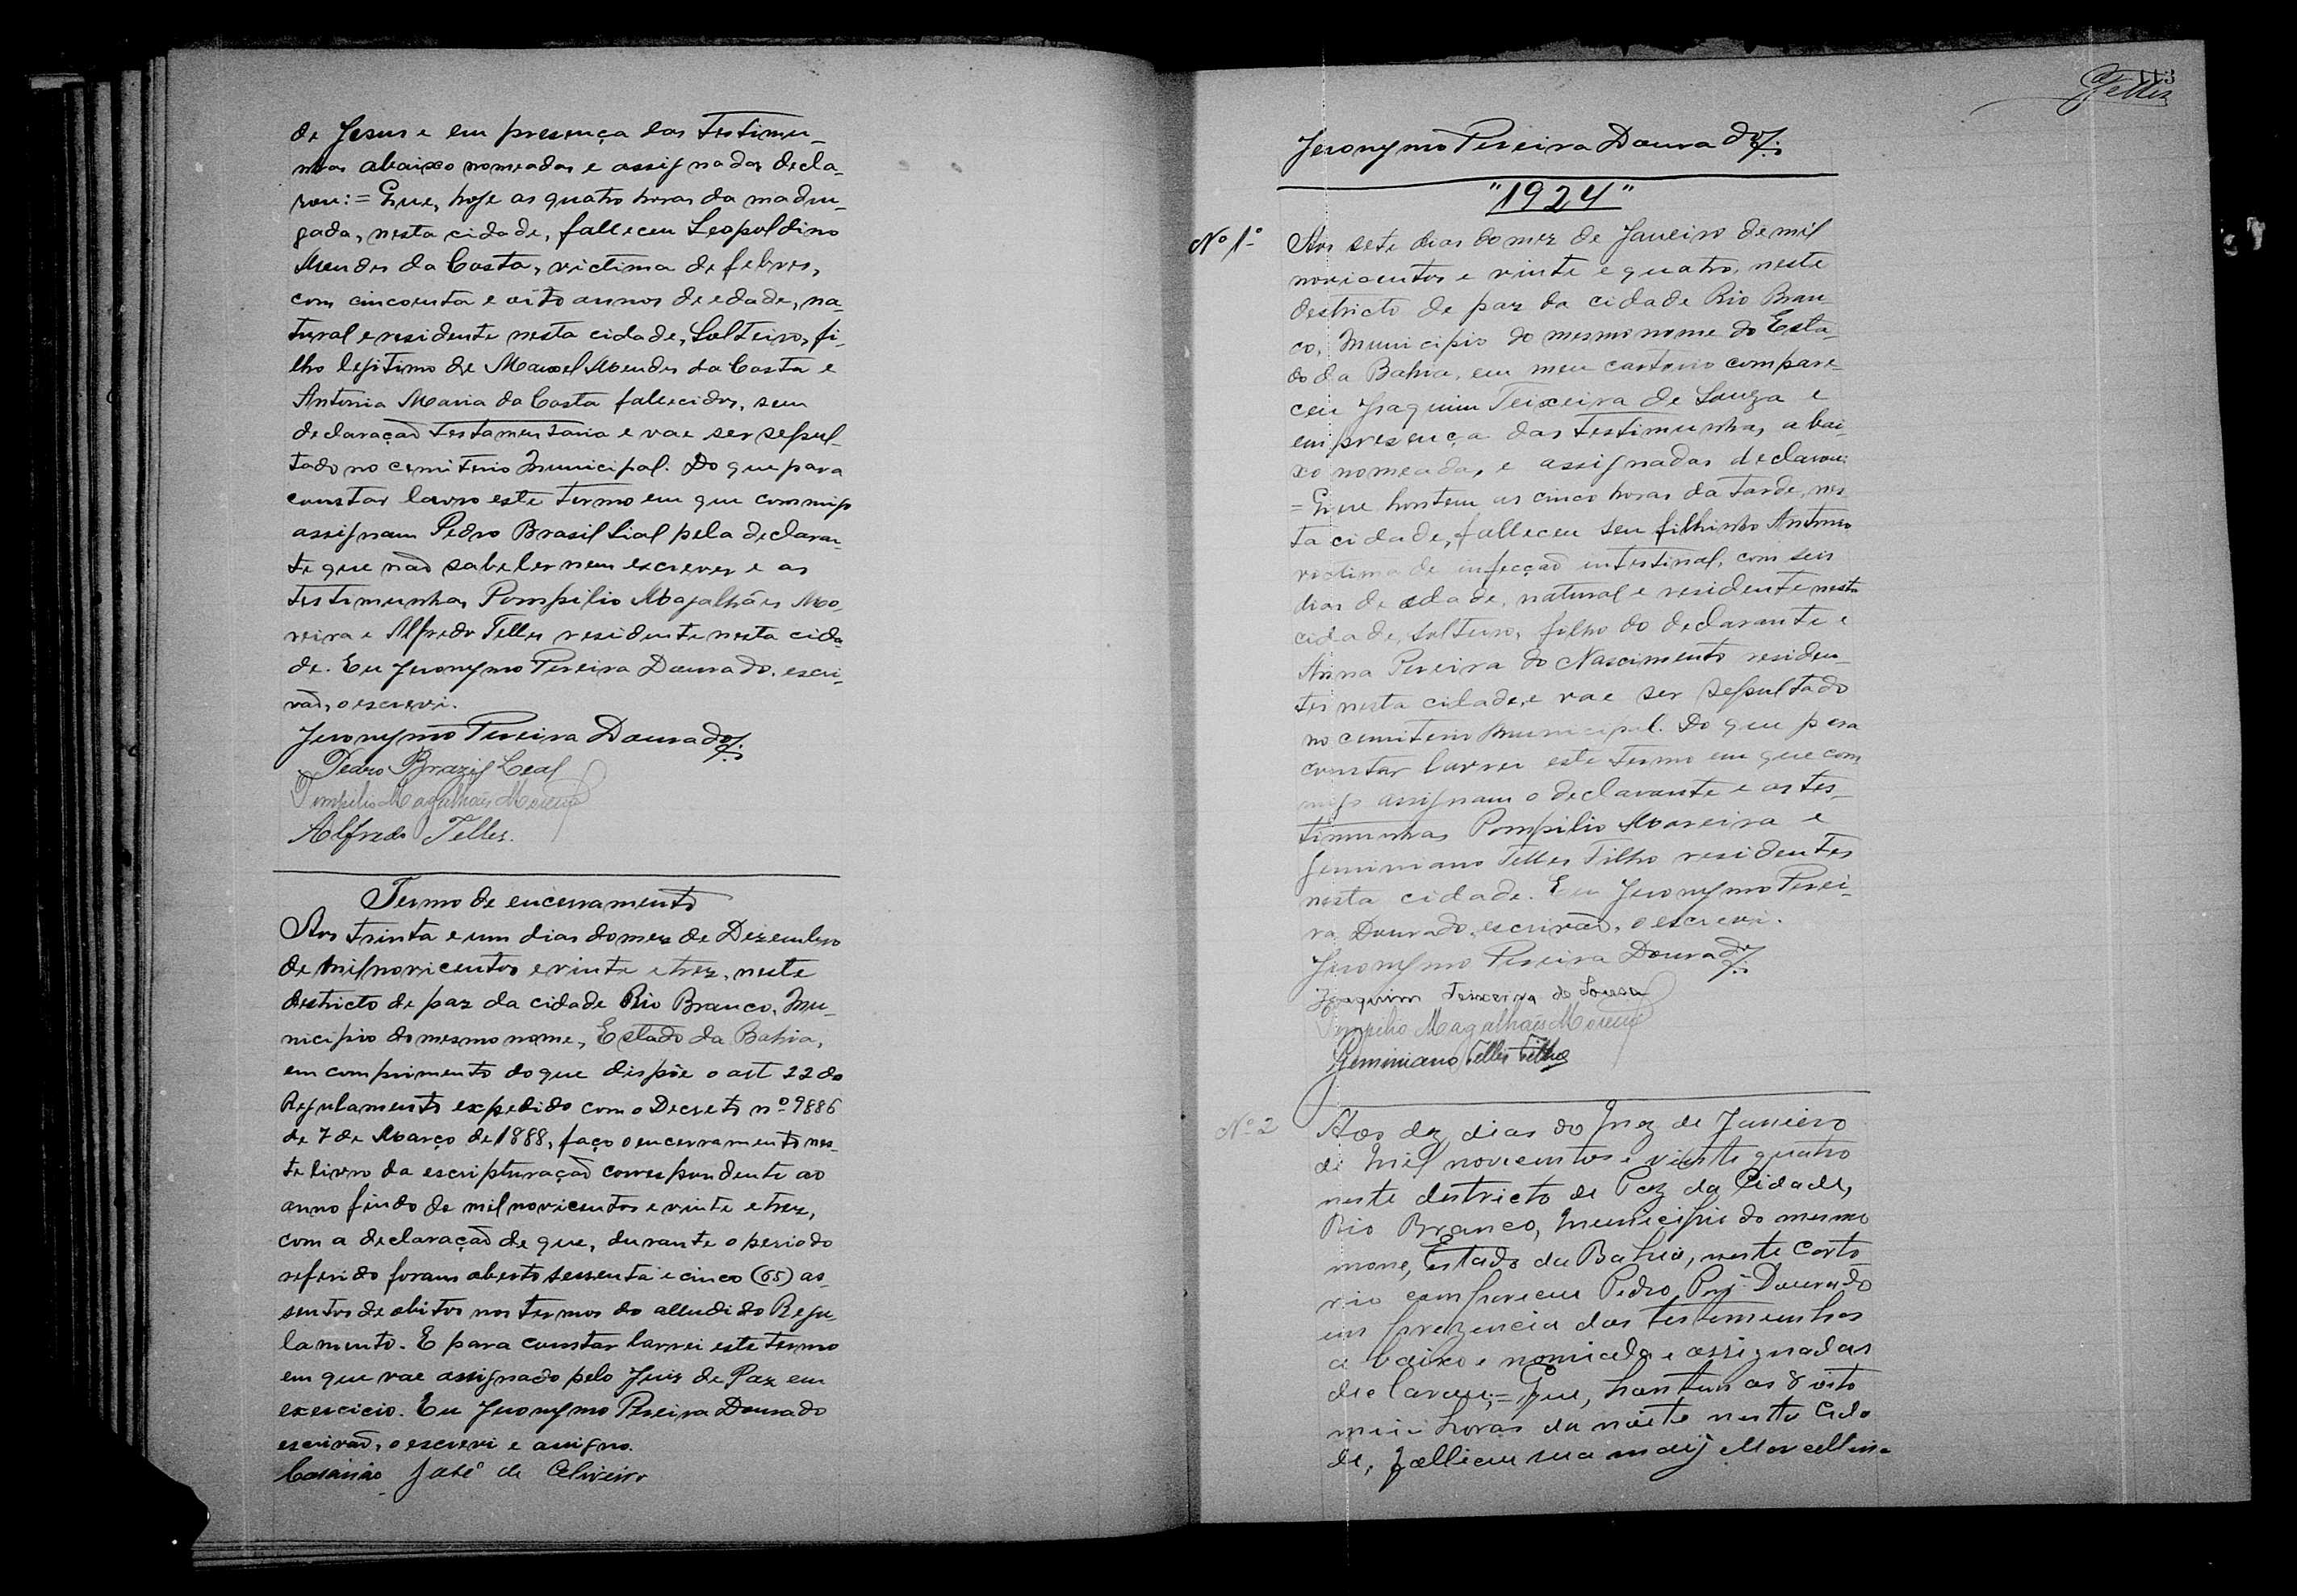 de Jesus e em presença das testimu-
nhas abaixo nomeadas e assignadas decla-
rou:= Que, hoje as quatro horas da madru-
gada, nesta cidade, falleceu Leopoldino
Mendes da Costa, victima de febres,
com cincoenta e oito annos de edade, na-
tural e residente nesta cidade, Solteiro, fi-
lho legitimo de Manoel Mendes da Costa e
Antonia Maria da Costa fallecidos, sem
declaração testamentaria e vae ser sepul-
tado no cemiterio Municipal. Do que para
constar lavro este termo em que commigo
assignam Pedro Brasil Lial pela declaran-
te que não sabe ler nem escrever e as
testimunhas Pompilio Magalhães Mo-
reira e Alfredo Telles residente nesta cida
de. Eu Jeronymo Pereira Dourado, escri-
vão, o escrevi.
Jeronymo Pereira Dourado
Pedro Brazil Leal
Pompilio Magalhães Moreira
Alfredo Telles.
Termo de encerramento
Aos trinta e um dias do mez de Dezembro
de mil novicentos e vinte e trez, neste
destricto de paz da cidade Rio Branco, Mu-
nicipio do mesmo nome, Estado da Bahia,
em comprimento do que dispõe o art 22 do
Regulamento expedido com o Decreto nº 9886
de 7 de Março de 1888, faço o encerramento nes-
te livro da escripturação correspondente ao
anno findo de mil novicentos e vinte e trez,
com a declaração de que, durante o periodo
referido foram aberto sessenta e cinco (65) as-
sentos de obitos nos termos do alludido Regu-
lamento. E para constar lavrei este termo
em que vae assignado pelo Juiz de Paz em
exercicio. Eu Jeronymo Pereira Dourado
escrivão, o escrevi e assigno.
José de Oliveira
113
Telles
Jeronymo Pereira Dourado
"1924"
Nº 1º
Aos sete dias do mez de Janeiro de mil
novicentos e vinte e quatro, neste
destricto de paz da cidade Rio Bran-
co, Municipio do mesmo nome do Esta-
do da Bahia, em meu cartorio compare-
ceu Joaquim Teixeira de Souza e
em presença das testimunhas abai-
xo nomeadas e assignadas declarou:
= Que hontem as cinco horas da tarde, nes-
ta cidade, falleceu seu filhinho Antonio
victima de infecção intestinal, com seis
dias de edade, natural e residente nesta
cidade, solteiro, filho do declarante e
Anna Pereira do Nascimento residen-
tes nesta cidade, e vae ser sepultado
no cemiterio Municipal. Do que para
constar lavrei este termo em que com
migo assignam o declarante e as tes-
timunhas Pompilio Moreira e
Geminiano Telles Filho residentes
nesta cidade. Eu Jeronymo Perei-
ra Dourado, escrivão, o escrevi.
Jeronymo Pereira Dourado
Joaquim Teixeira de Sousa
Pompilio Magalhães Moreira
Geminiano Telles Filho
Nº 2
Aos dez dias do Mez de Janiero
de Mil novicentos e vinte quatro
neste destricto de Paz da Cidade,
Rio Branco, Municipio do mesmo
nome, Estado da Bahia, neste Carto-
rio compareceu Pedro Prª Dourado
em prezencia das testemunhas
a baixo e nomiada e assignadas
declarou:= Que, hontem as 8 oito
meia horas da noite nesta Cida
de, falliceu sua maij Marcellina